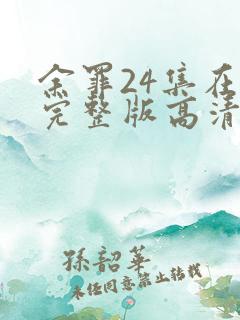 余罪24集在
完整版高清
孫韶華
未经同意禁止转载